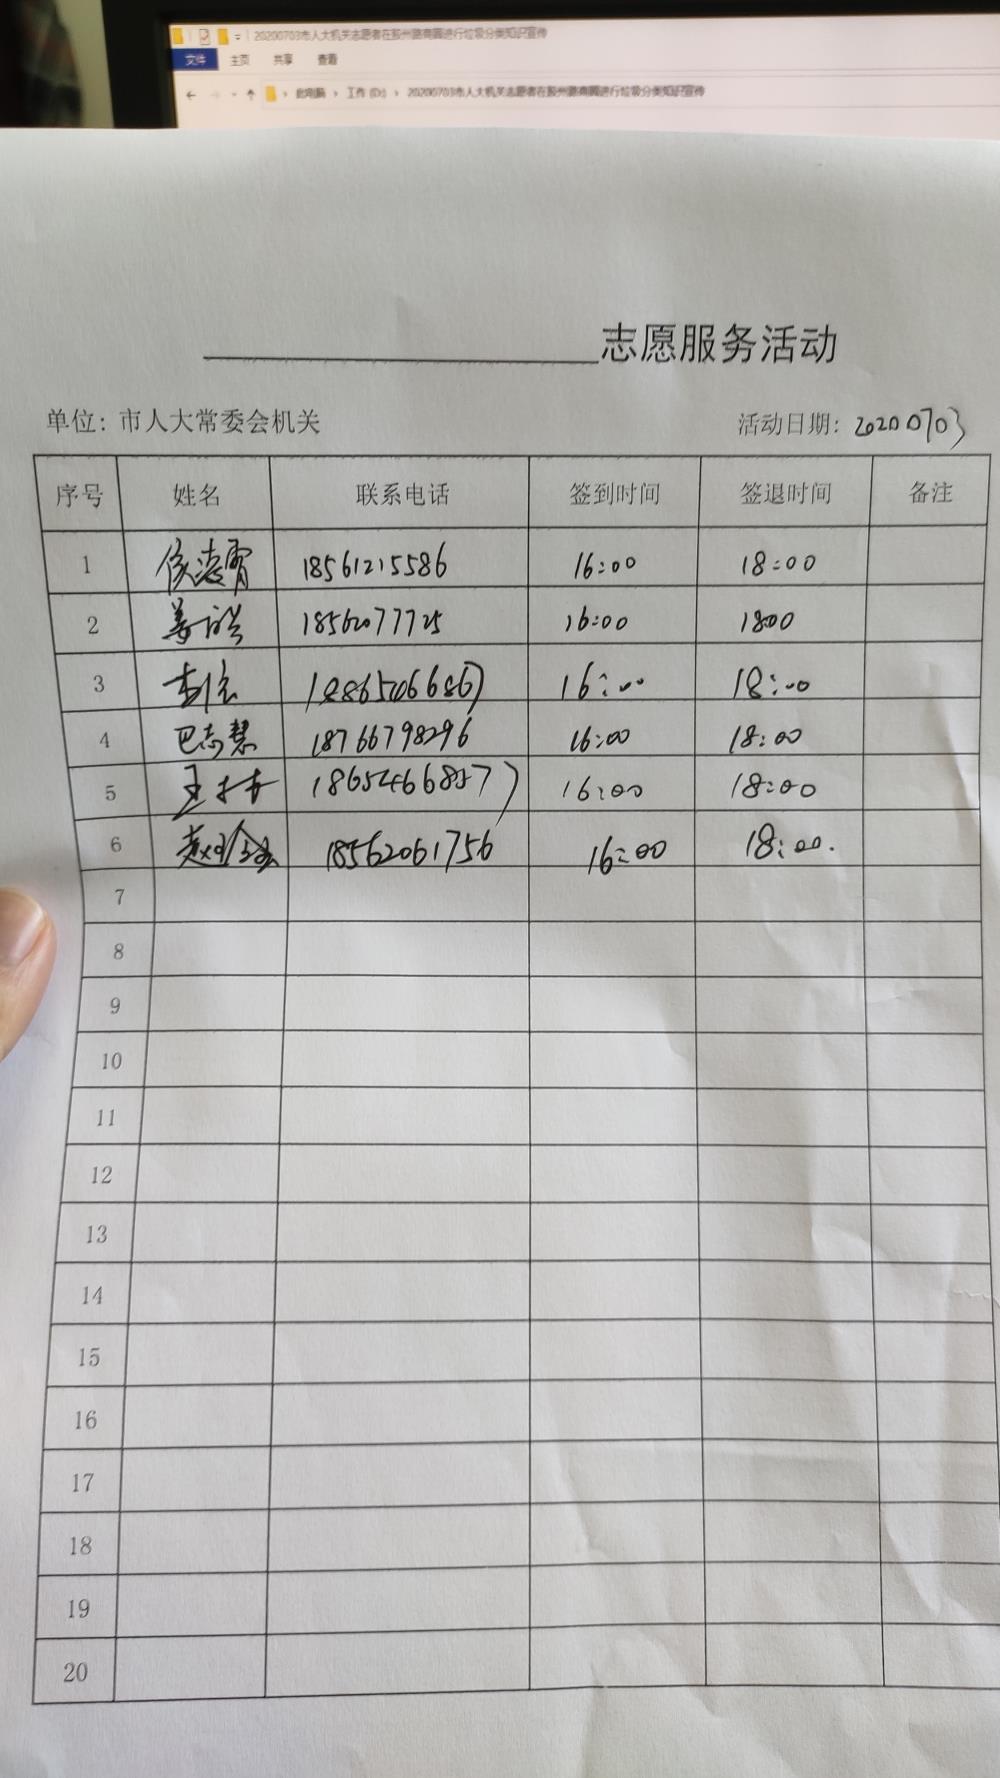 20200703市人大机关志愿者在胶州路商圈进行垃圾分类知识宣传
文件 主页 共享 查看
此电脑 › 工作 (D:) › 20200703市人大机关志愿者在胶州路商圈进行垃圾分类知识宣传
志愿服务活动
单位：市人大常委会机关 活动日期：20200703
序号 姓名 联系电话 签到时间 签退时间 备注
1 侯凌霄 18561215586 16:00 18:00
2 姜 18562077725 16:00 1800
3 16:00 18:00
4 巴志慧 18766798296 16:00 18:00
5 王 16:00 18:00
6 18562061756 16:00 18:00.
7
8
9
10
11
12
13
14
15
16
17
18
19
20